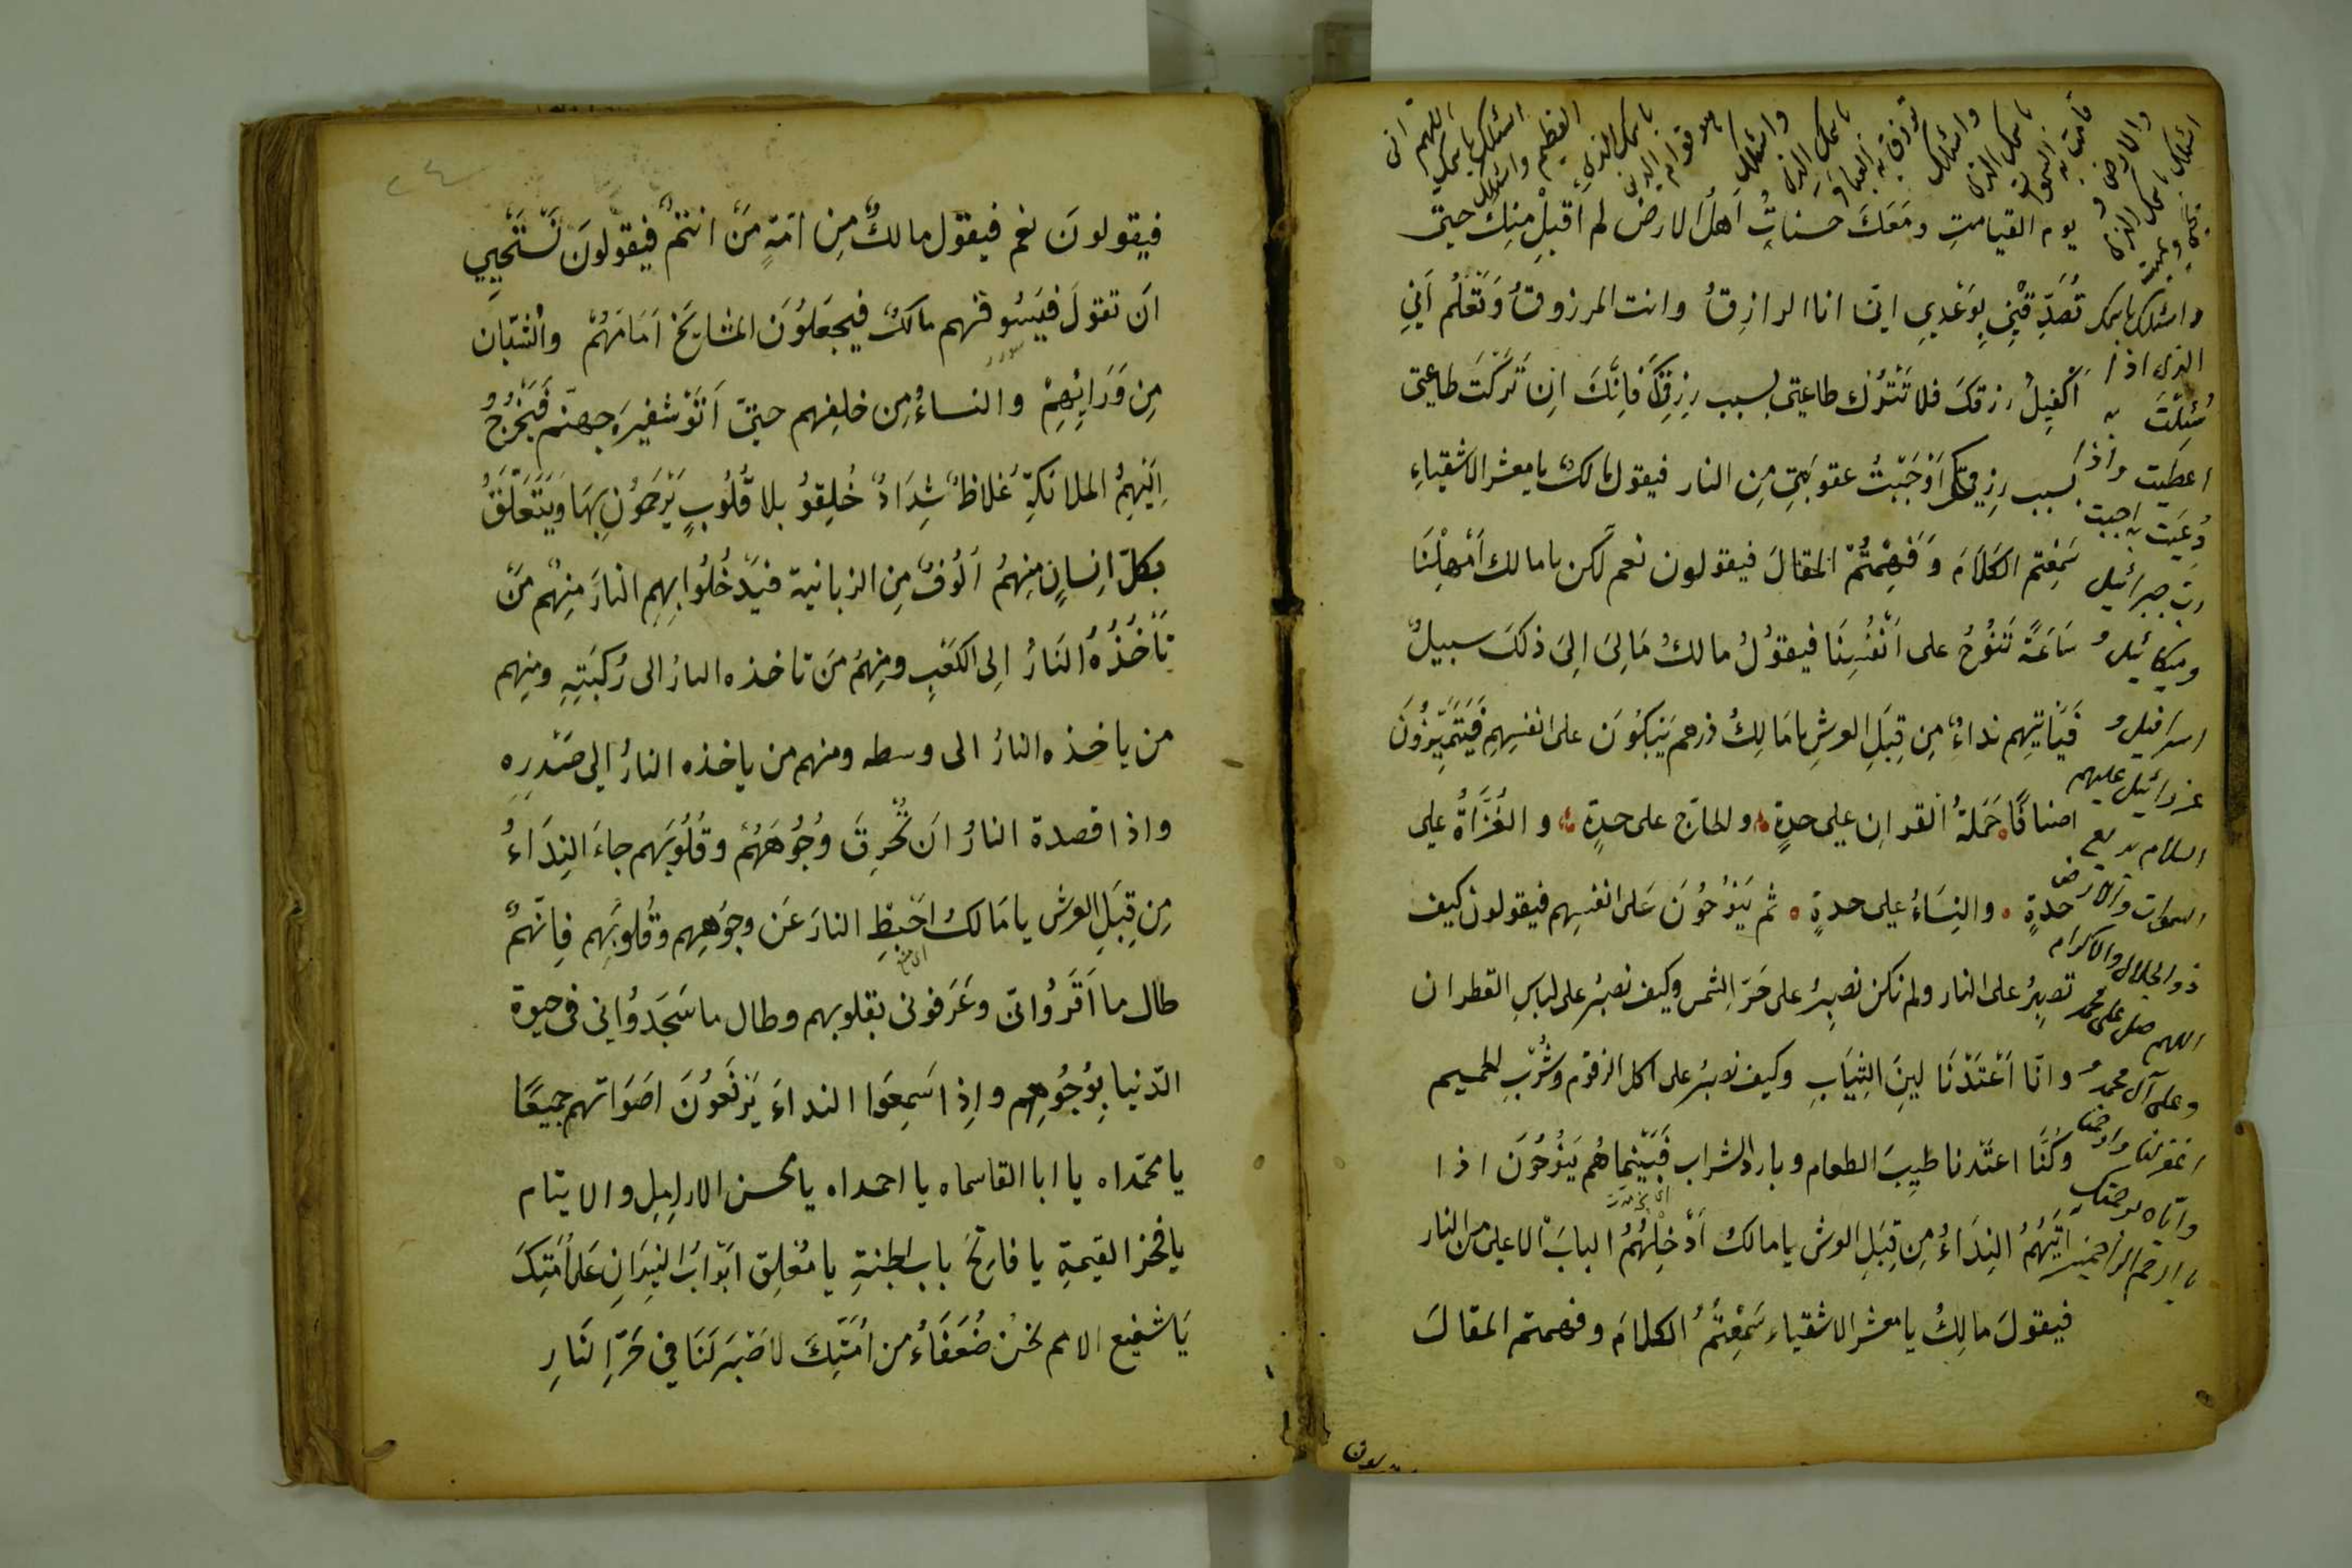 يوم القيامتِ ومَعَكَ حسناتُ اَهل الارض لم اَقبلْ مِنكَ حتىّ
تُصَدِّقَنِي بِوَعْدِي اِنّ انا الرازِقُ وانت المرزوقُ وَتَعْلَم اَنِّي
اَكْفِيلُ رزقكَ فلا تَتْرُك طاعتى بسبب رِزقِكَ فَاِنَّكَ اِن تَرَكْتَ طاعتى
بسبب رِزقِكَ اَوْجَبْتُ عقوبتى مِن النار فيقول مالكٌ يا معشر الاشقياءِ
سَمِعْتم الكَلاَمَ وَفَهِمْتُمْ المقالَ فيقولون نعم لكن يا مالك اَمْهِلْنَا
سَاعَةً نَنُوْحُ على اَنْفُسِنَا فيقوُلُ مالكُ مَالِىَ اِلىَ ذلكَ سبيلٌ
فَيَأتيهِم نداءٌ مِن قِبَلِ العرشِ يا مَالِكُ ذرهم يَبْكُوْنَ على انفسِهِم فَيَتَمَيَّزُوْنَ
اصنافًا حَمَلةُ القران على حدةٍ والحاج على حدةٍ و الغُزَاةُ على
حدةٍ والنِسَاءُ على حدةٍ ثم يَنُوْحُوْنَ عَلى انفسِهِم فيقولون كيف
نصبِرُ على النار ولم نكن نصبِرُ على حَرِّ الشمس وكيف نصبرُ على لباسِ القطران
وانّا اَعْتَدْنَا لينَ الثِيَابِ وكيف نصبرُ على اكل الزقوم وشُرْبِ الحميم
وكُنَّا اعتَدنا طيبَ الطعام وبارد الشراب فَبَيْنَما هُم يَنُوْحُوْنَ اذا
اَتَيَهُمُ النِدَاءُ مِن قِبَلِ العرش يا مالكُ اَدْخِلْهُمُ البابَ الاعلى من النار
فيقولَ مالِكُ يا معشر الاشقياء سَمِعْتُمُ الكلامَ وفهمتم المقالَ
اللهم انى
اسئلك باسمك
العظيم واسئلك
باسمك الذى
واسئلك
باسمك الذى
واسئلك
باسمك الذى
والارض و
اسئلك باسمك الذى
واسئلك باسمك
الذى اذا
سُئِلْتَ به
اعطَيت واذا
دُعيَت به اجبت
ربّ جبرائيل
وميكائيل و
اسرافيل و
عزرائيل عليهم
السلام بديع
السموات والارض
ذو الجلال والاكرام
اللهم صل على محمد
وعلى آل محمد و
اغفر لنا وارحمنا
وايّاه برحمتك
يا ارحم الراحمين
فيقولونَ نعم فيقول مالكٌ مِن امّةِ مَنْ انتم فيقولونَ نَسْتَحْيِي
اَن نقولَ فيَسُوقهم مالكٌ فيجعَلوُنَ المشايخَ اَمَامَهُمْ والشبّان
مِن وَرَائِهِمْ والنساءُ مِن خلفِهم حتىّ اَتَوْ شفيرَ جهنّم فَيَخْرُجُ
اِلَيْهِمُ الملائكةِ غلاظٌ شِدَادٌ خُلِقوُ بلا قُلُوبٍ يَرْحَمُوْنَ بِهَا وَيَتَعَلَّقُ
بكلّ اِنسانٍ مِنهمُ اَلُوفٌ مِن الزبانية فيَدْخُلُوا بِهِم النارَ مِنهُم مَنْ
تَأخُذُهُ النَارُ اِلى الكَعْبِ ومِنهمُ مَن تاخذه النارُ الى رُكبَتِهِ ومنهم
من ياخذه النارُ الى وسطه ومنهم من ياخذه النارُ الى صَدْرِهِ
واذا قصدة النارُ اَن تُحْرِقَ وُجُوْهَهُمْ وقُلُوْبَهم جاءَ النِدَاءُ
مِن قِبَلِ العرش يا مَالكُ احْبِطِ النارَ عَن وجوُهِهم وقلُوبِهم فاِنّهُمْ
طال ما اَقَرُوُا بى وعَرَفونى بقلوبهم وطال ما سَجَدُوْا لى فى حيوة
الدّنيا بِوُجُوْهِهِم واِذا سَمِعَوا النداءَ يَرْفَعُوْنَ اَصَوَاتهم جميعًا
يا محمّداه يا ابا القاسماه يا احمداه يا محسن الارامِلِ والايتام
يا فخر القيمةِ يا فاتِحَ باب الجنةِ يا مُغلِق اَبْوَابَ النيِرَانِ عَلى اُمّتِكَ
يَا شفيع الامم نحْنُ ضُعَفَاءُ من اُمَّتِكَ لا صَبْرَ لَنَا فِي حَرِّ النَارِ